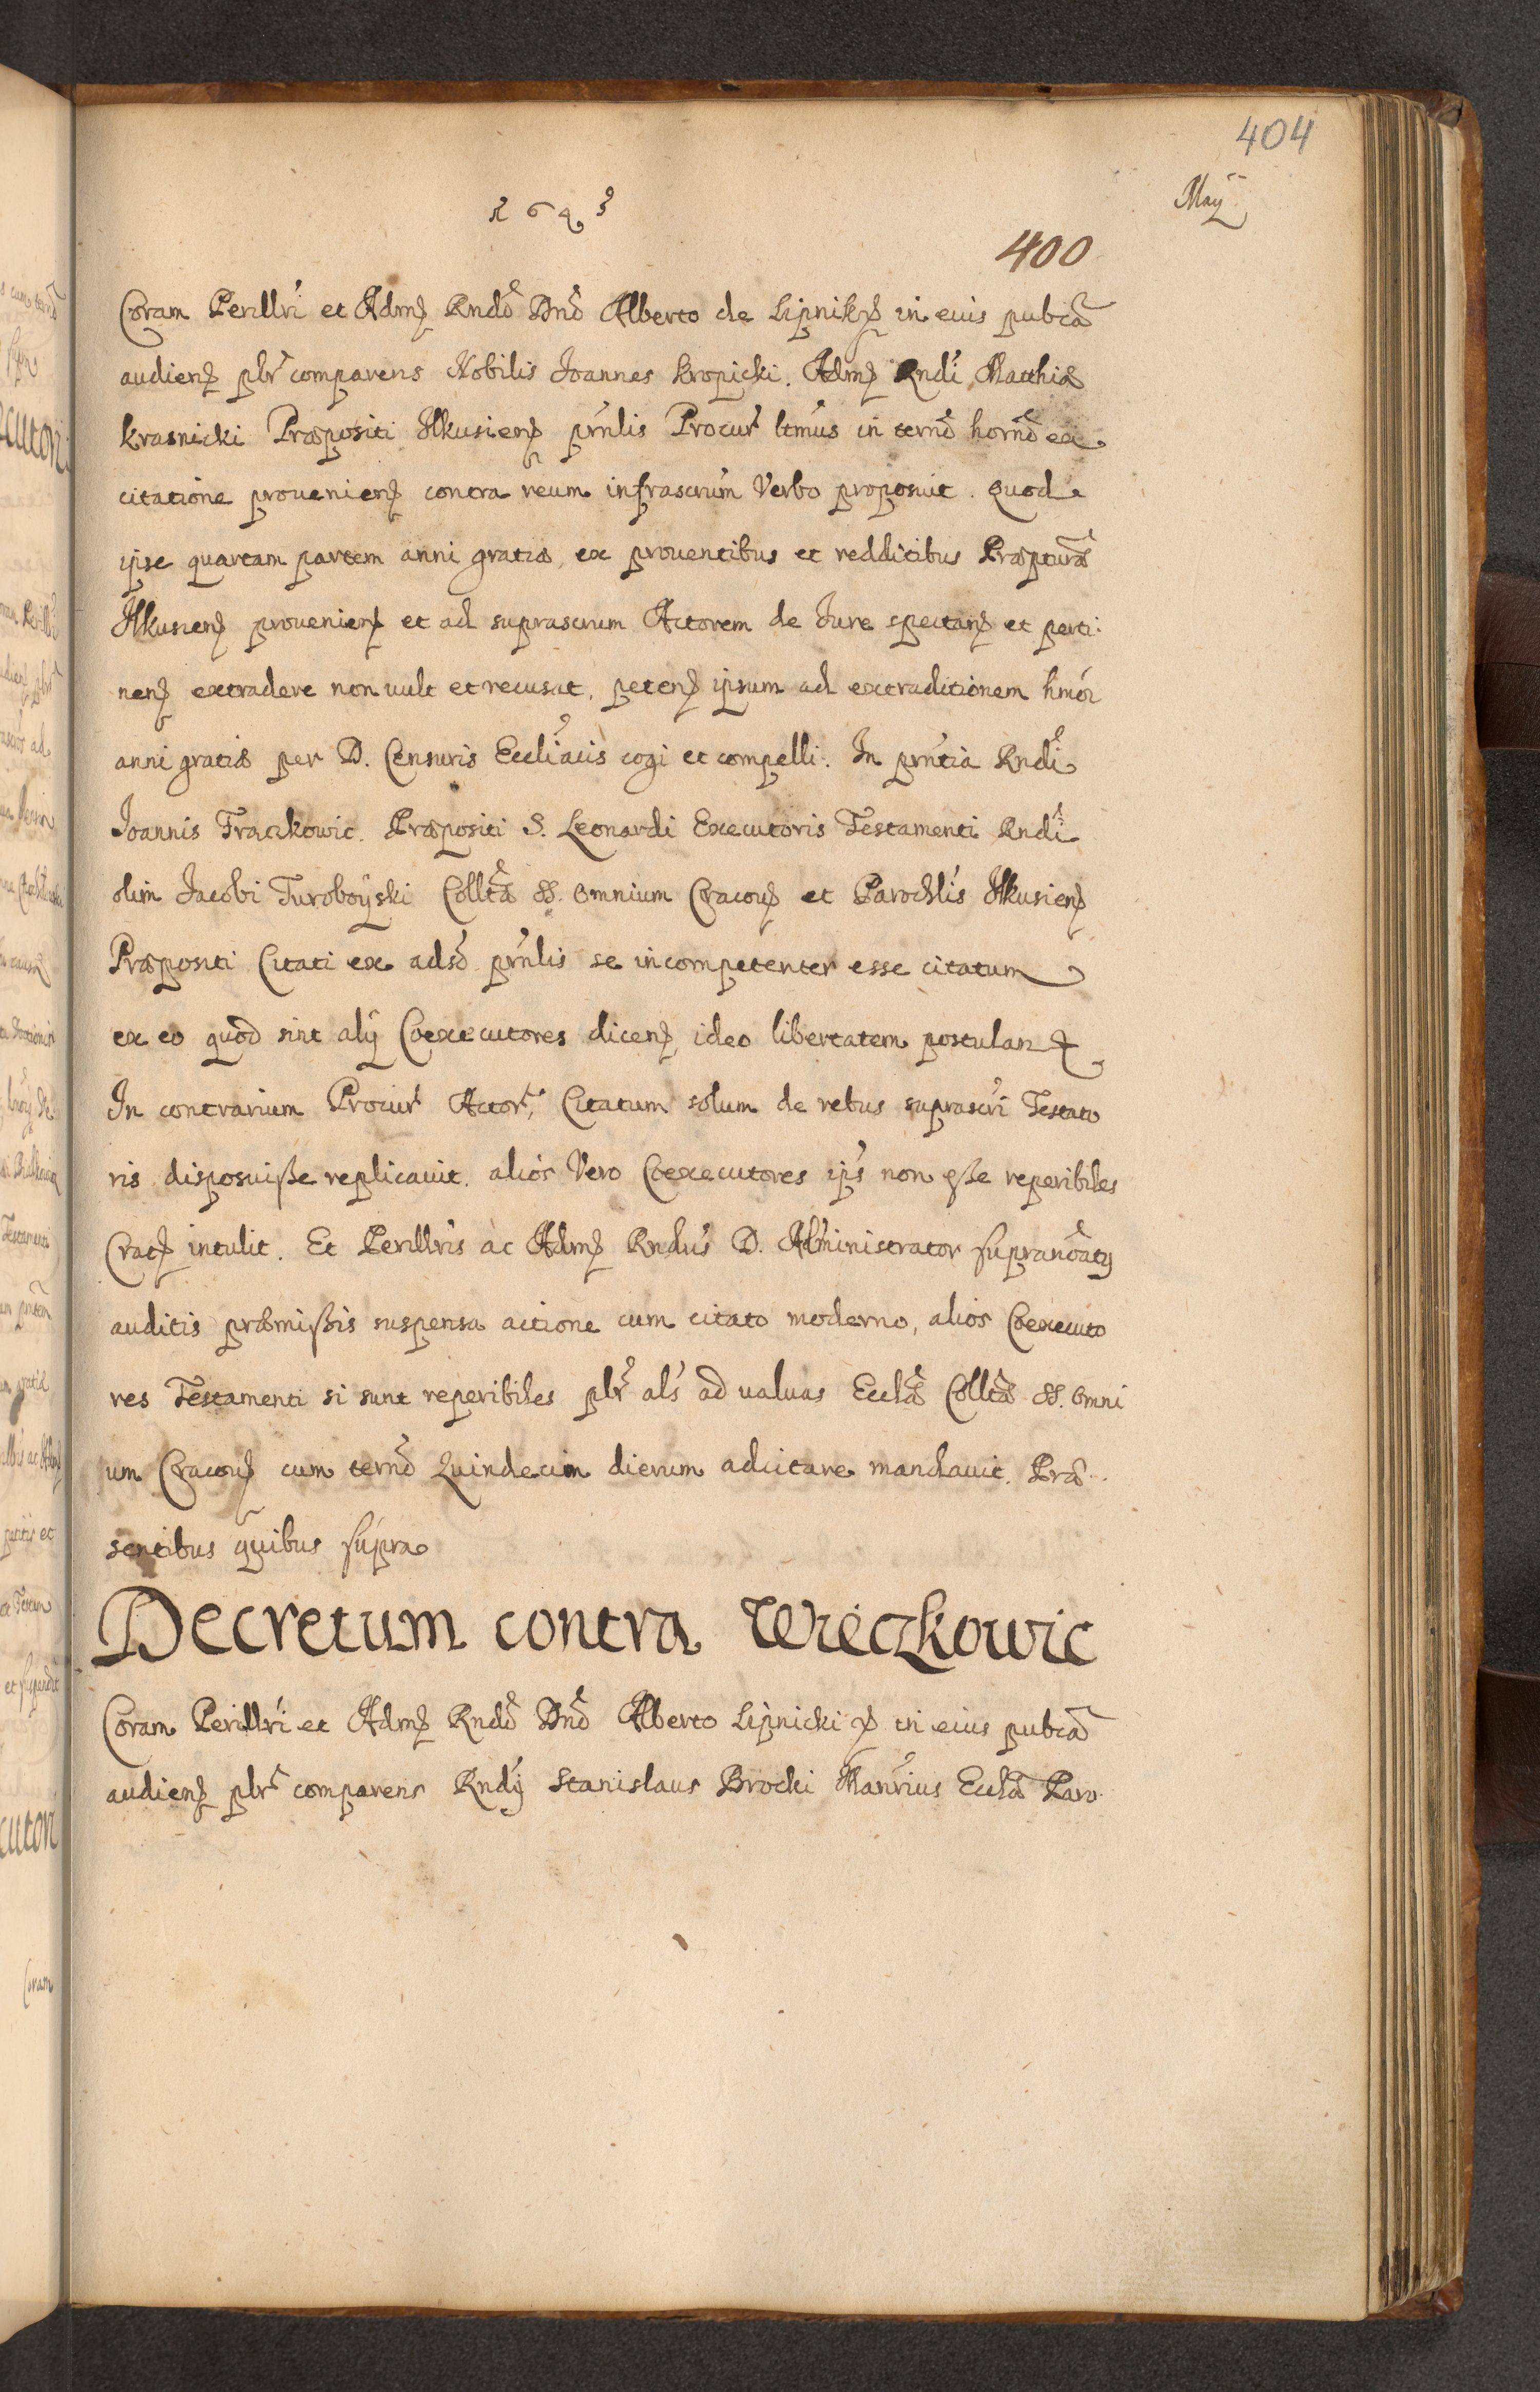 404
May
1643
400
Coram Perillri et Admꝫ Rndo Dno Alberto de Lipnikꝫ in eius pubca
audienꝫ plr comparens Nobilis Joannes Kropicki. Admꝫ Rndi Matthiæ
Krasnicki Præpositi Ilkusienꝫ prnlis Procur ltmus in terno horno ex
citatione prouenienꝫ contra reum infrascrum Verbo proposuit. Quod
ipse quartam partem anni gratiæ, ex prouentibus et redditibus Præpturæ
Ilkusienꝫ prouenienꝫ et ad suprascrum Actorem de Iure spectanꝫ et perti:
nenꝫ extradere non uult et recusat, petenꝫ ipsum ad extraditionem hmoi
anni gratiæ per D. Censuris Eccliacis cogi et compelli. In prntia Rndi
Joannis Fraczkowic. Præpositi S. Leonardi Executoris Testamenti Rndi
olim Jacobi Turoboÿski Colltæ SS. Omnium Cracouꝫ et Parochlis Ilkusienꝫ
Præpositi Citati ex adso prnlis se incompetenter esse citatum
ex eo quod sint alÿ Coexecutores dicenꝫ, ideo libertatem postulan
In contrarium Procur Actor, Citatum solum de rebus suprascri Testato
ris disposuiße replicauit. alios Vero Coexecutores ips non eße reperibiles
Cratꝫ intulit. Et Perillris ac Admꝫ Rndus D. Administrator supranoatꝫ
auditis præmißis suspensa actione cum citato moderno, alios Coexecuto
res Testamenti si sunt reperibiles plr als ad ualuas Ecclæ Colltæ SS. Omni
um Cracouꝫ cum terno Quindecim dierum adcitare mandauit. Præ
sentibus quibus supra
Decretum contra Wiéczkowic
Coram Perillri et Admꝫ Rndo Dno Alberto Lipnicki in eius pubca
audienꝫ plr comparens Rndÿ Stanislaus Brocki Manrius Ecclæ Paro